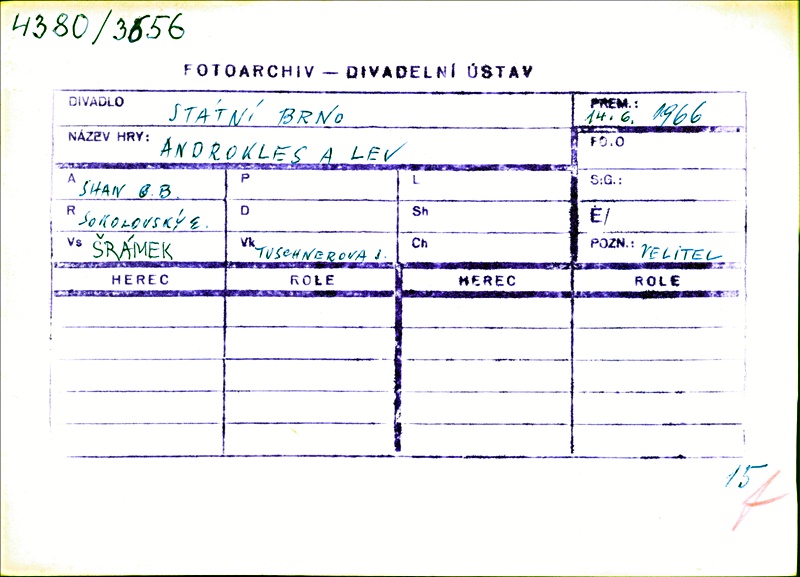 4380/3656
FOTOARCHIV — DIVADELNÍ ÚSTAV
DIVADLO STÁTNÍ BRNO
PREM.: 14.6. 1966
NÁZEV HRY: ANDROKLES A LEV
FO.O
A SHAW G.B.
P
L
SIG.:
R SOKOLOVSKÝ E.
D
Sh
Ě/
Vs ŠRÁMEK
Vk TUSCHNEROVA J.
Ch
POZN.: VELITEL
HEREC ROLE HEREC ROLE
15